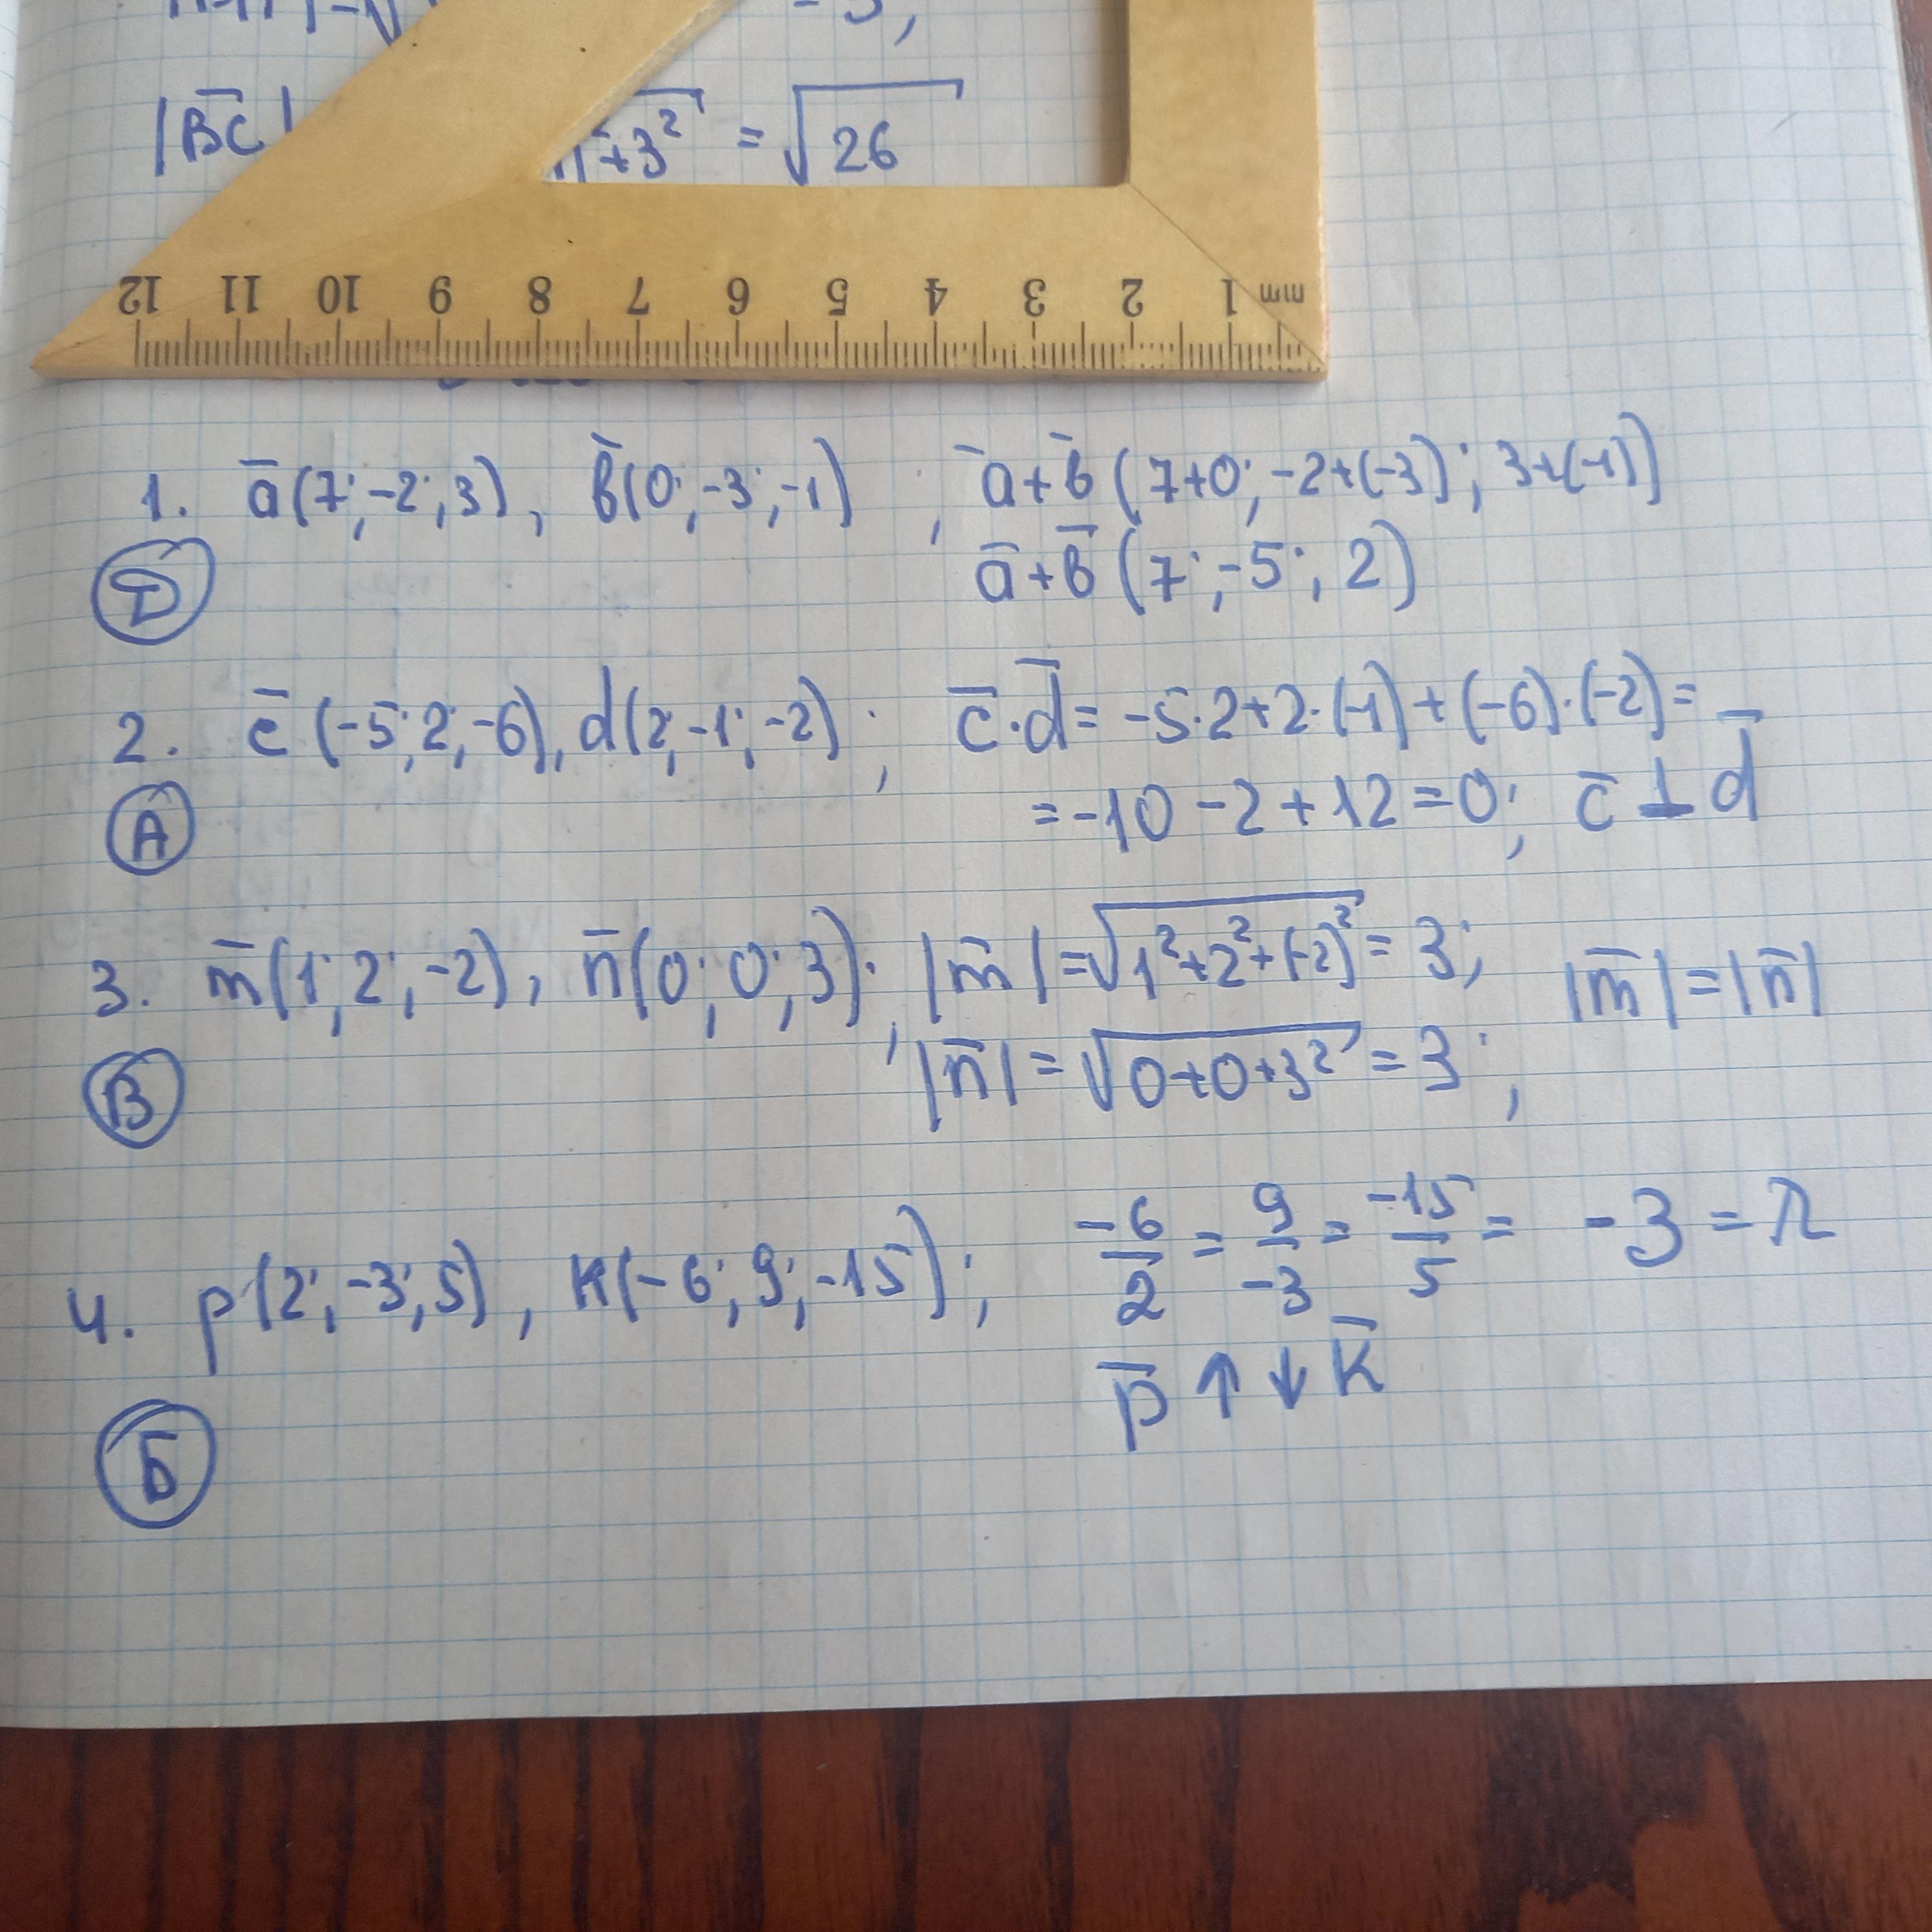 |BC| +3² = √26
12 11 10 9 8 7 6 5 4 3 2 1 mm
1. a̅(7; -2; 3), b̅(0; -3; -1); a̅+b̅(7+0; -2+(-3); 3+(-1))
Д a̅+b̅(7; -5; 2)
2. c̅(-5; 2; -6), d(2; -1; -2); c̅·d̅= -5·2+2·(-1)+(-6)·(-2)=
А =-10-2+12=0; c̅ ⊥ d̅
3. m̅(1; 2; -2), n̅(0; 0; 3); |m̅|=√1²+2²+(-2)² = 3; |m̅|=|n̅|
В |n̅| = √0+0+3² = 3;
4. p(2; -3; 5), k(-6; 9; -15); -6/2 = 9/-3 = -15/5 = -3 = λ
p̅ ↑↓ k̅
Б